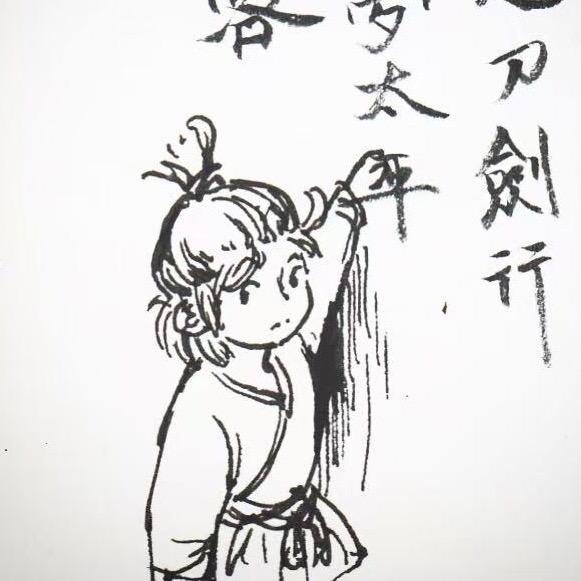 刀劍行
太平
客